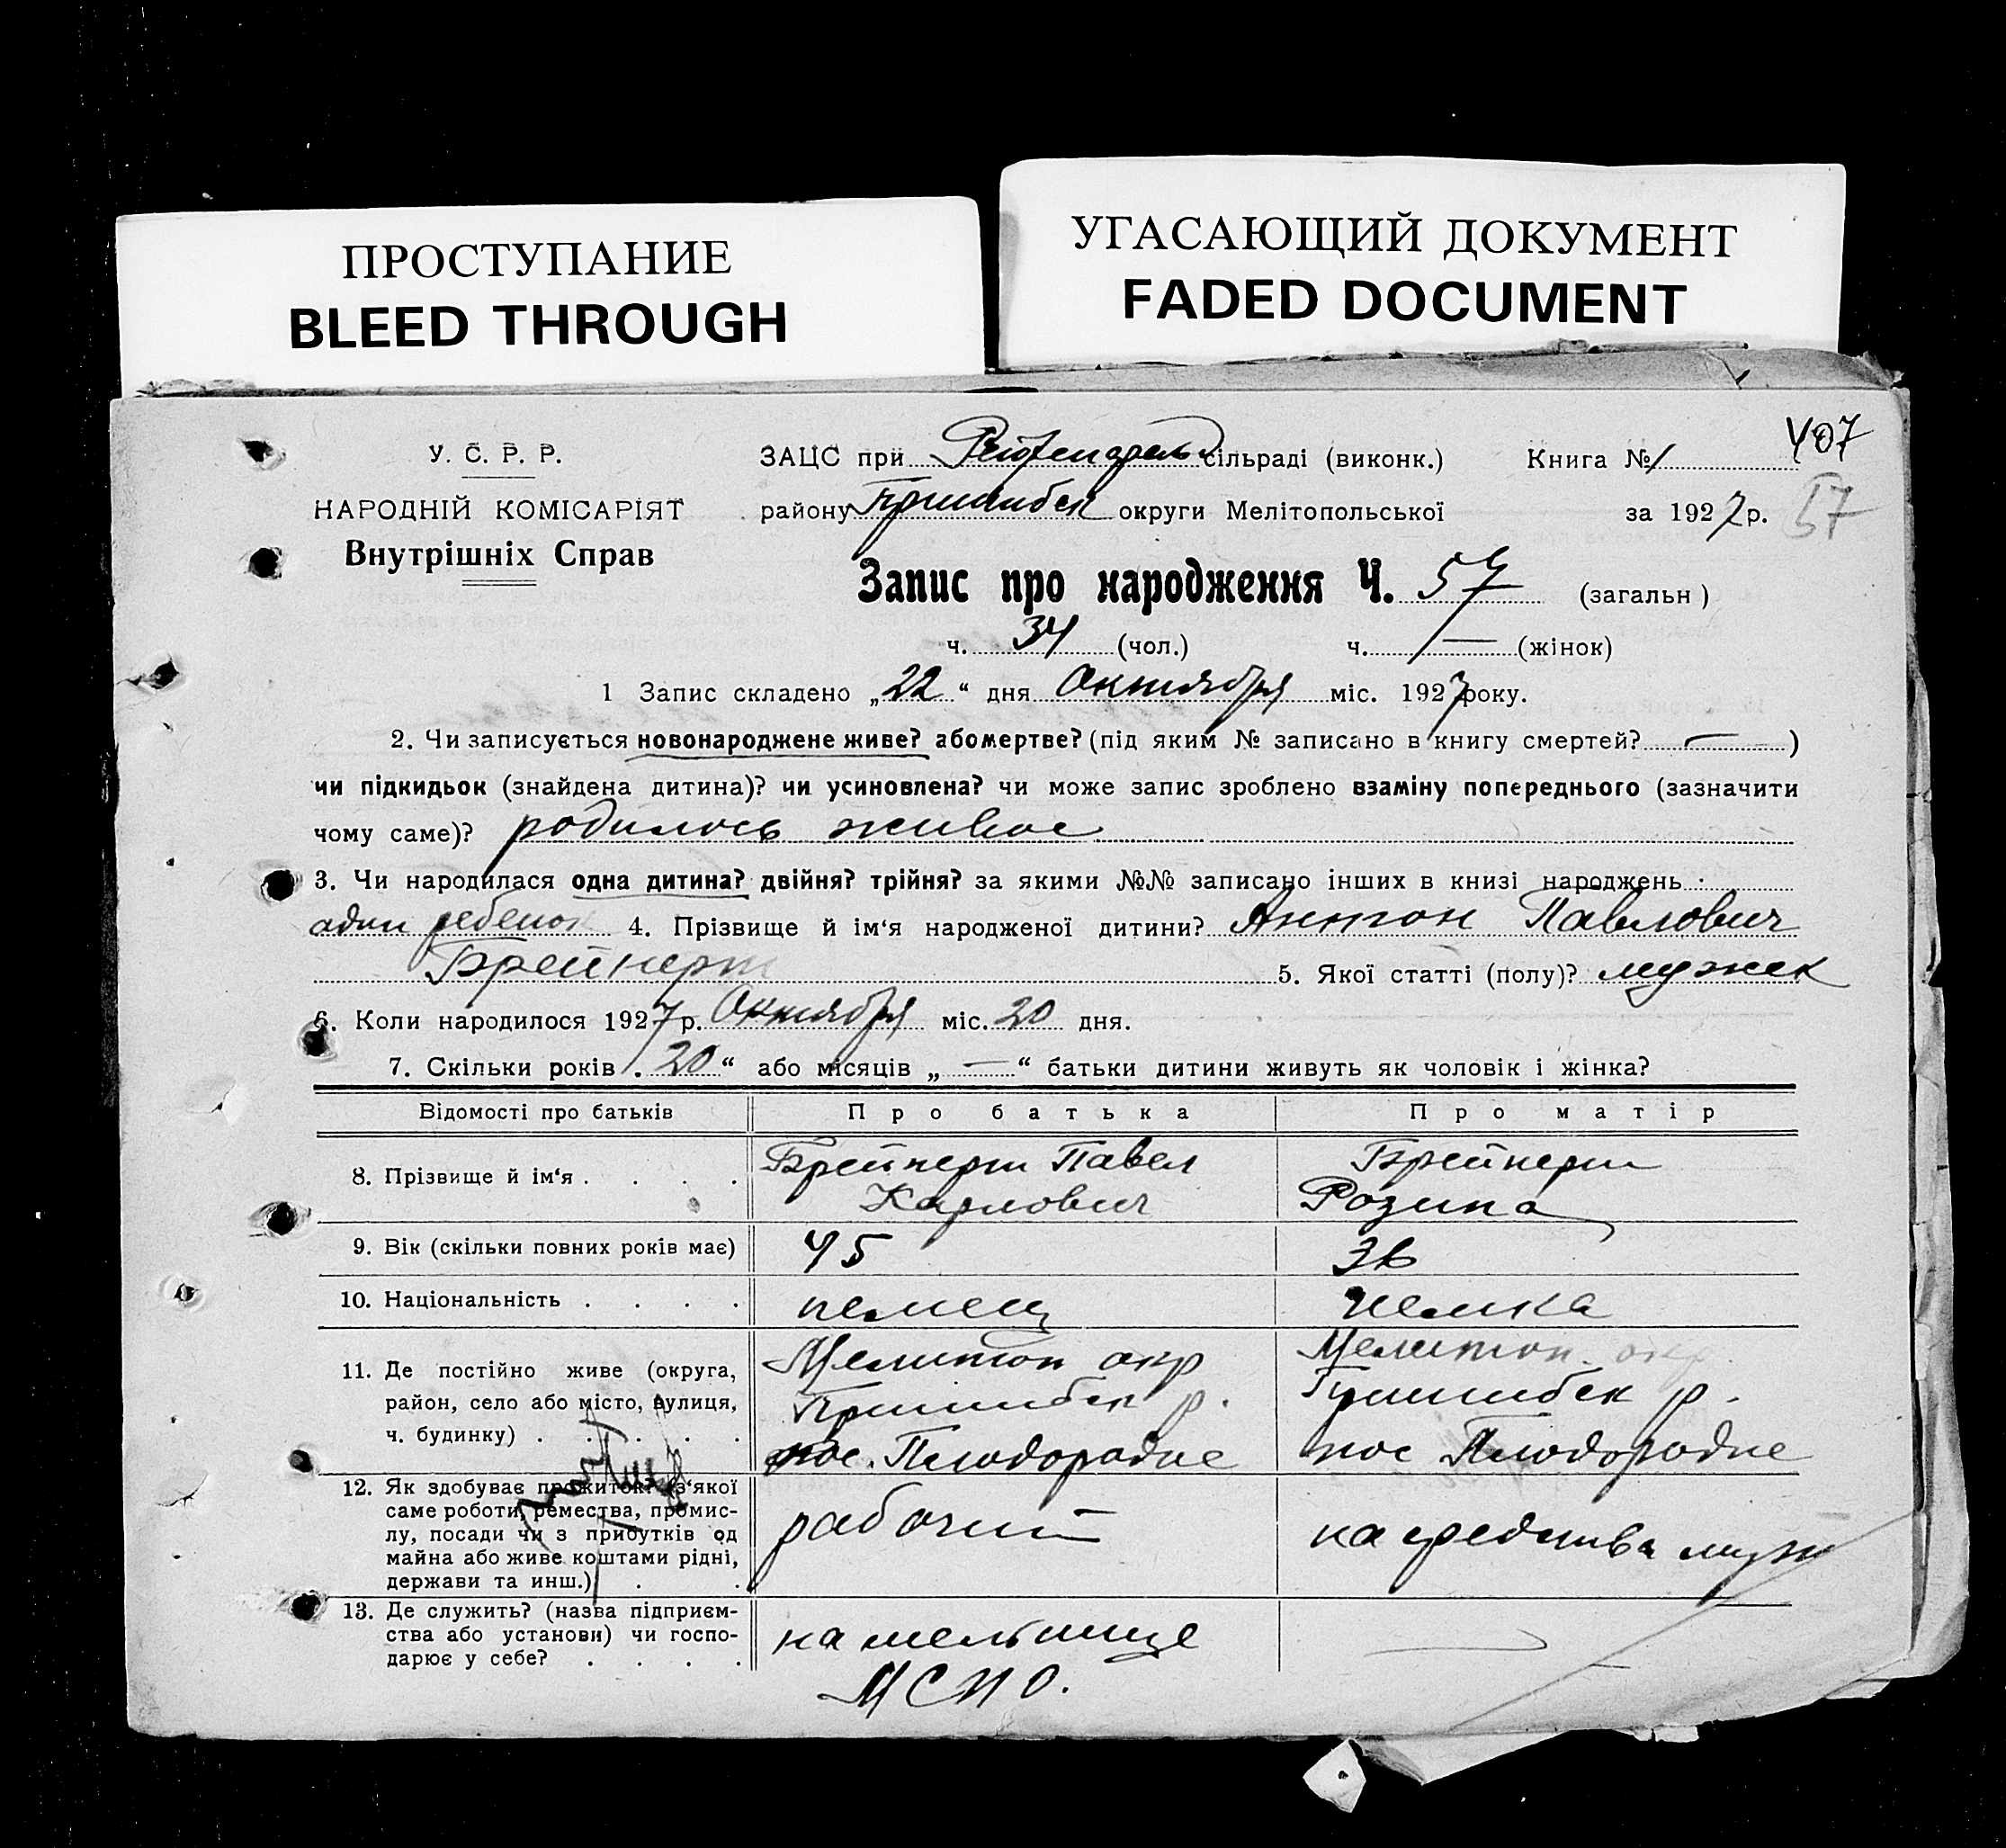 ПРОСТУПАНИЕ
BLEED THROUGH
УГАСАЮЩИЙ ДОКУМЕНТ
FADED DOCUMENT
407
57
У. С. Р. Р.
НАРОДНІЙ КОМІСАРІЯТ
Внутрішніх Справ
ЗАЦС при Рейхенфельд сільраді (виконк.) Книга № 1
району Пришибск округи Мелітопольської за 1927 р.
Запис про народження Ч. 57 (загальн)
ч. 34 (чол.) ч. — (жінок)
1 Запис складено „22“ дня Октября міс. 1927 року.
2. Чи записується новонароджене живе? або мертве? (під яким № записано в книгу смертей? — )
чи підкидьок (знайдена дитина)? чи усиновлена? чи може запис зроблено взаміну попереднього (зазначити
чому саме)? родилось живое
3. Чи народилася одна дитина? двійня? трійня? за якими №№ записано інших в книзі народжень .
один ребенок 4. Прізвище й ім‘я народженої дитини? Антон Павлович
Брейнерт 5. Якої статті (полу)? мужск
6. Коли народилося 1927 р. Октября міс. 20 дня.
7. Скільки років „20“ або місяців „ — “ батьки дитини живуть як чоловік і жінка?
Відомості про батьків Про батька Про матір
8. Прізвище й ім‘я . . . . Брейнерт Павел Карлович Брейнерт Розина
9. Вік (скільки повних років має) 45 36
10. Національність . . . . немец немка
11. Де постійно живе (округа, район, село або місто, вулиця, ч. будинку) . . . . . Мелитоп окр Пришибск р. пос. Плодородие Мелитоп. окр. Пришибск р. пос Плодородие
12. Як здобуває прожиток? (з‘якої саме роботи, ремества, промислу, посади чи з прибутків од майна або живе коштами рідні, держави та инш.) . . рабочий на средства мужа
13. Де служить? (назва підприємства або установи) чи господарює у себе? . . . . на мельнице —
МСПО.